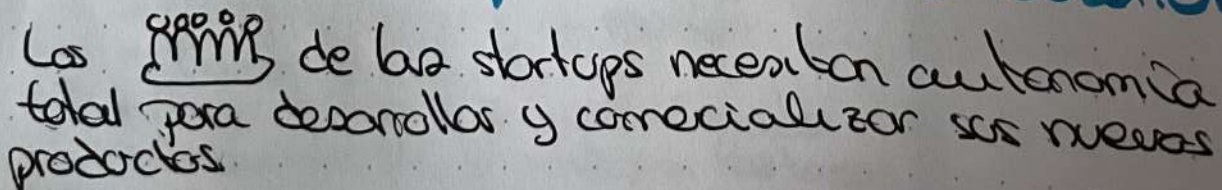 Los de las startups necesitan autonomía
total para desarrollar y comercializar sus nuevos
productos.